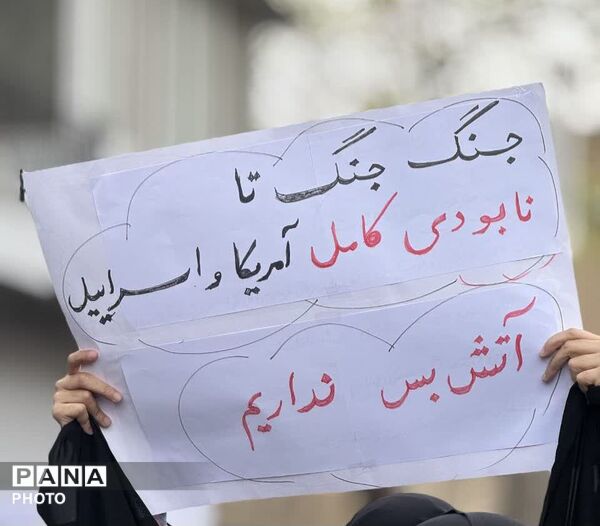 جنگ جنگ تا
نابودی کامل آمریکا و اسراییل
آتش بس نداریم
PANA
PHOTO